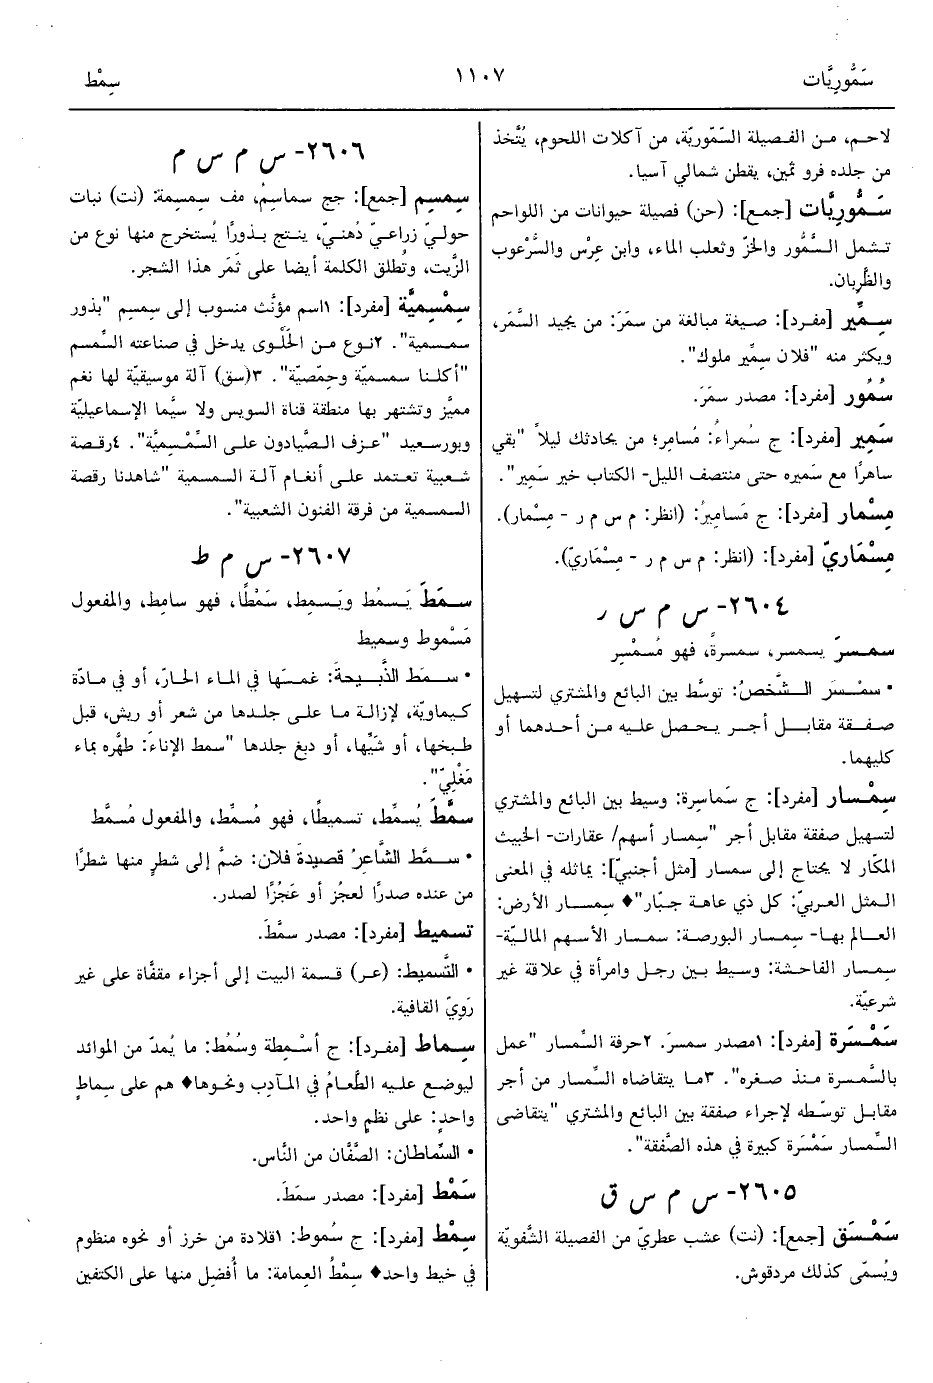 سَمُّوريَّات
١١٠٧
سِمْط
لاحم، من الفصيلة السَّمّوريّة، من آكلات اللحوم، يُتَّخذ
من جلده فرو ثمين، يقطن شمالي آسيا.
سَمُّوريَّات [جمع]: (حن) فصيلة حيوانات من اللواحم
تشمل السَّمُّور والخزّ وثعلب الماء، وابن عِرْس والسُّرْعوب
والظَّرِبان.
سِمِّير [مفرد]: صيغة مبالغة من سمَرَ: من يجيد السَّمَر،
ويكثر منه "فلان سِمِّير ملوك".
سُمُور [مفرد]: مصدر سمَرَ.
سَمِير [مفرد]: ج سُمراءُ: مُسامِر؛ من يحادثك ليلاً "بقي
ساهرًا مع سَميره حتى منتصف الليل- الكتاب خير سَمِير".
مِسْمار [مفرد]: ج مَساميرُ: (انظر: م س م ر - مِسْمار).
مِسْماريّ [مفرد]: (انظر: م س م ر - مِسْمَاريّ).
٢٦٠٤- س م س ر
سمسرَ يسمسر، سمسرةً، فهو مُسمْسِر
• سمْسرَ الشَّخصُ: توسَّط بين البائع والمشتري لتسهيل
صفقة مقابل أجر يحصل عليه من أحدهما أو
كليهما.
سِمْسار [مفرد]: ج سَماسِرة: وسيط بين البائع والمشتري
لتسهيل صفقة مقابل أجر "سِمسار أسهم/ عقارات- الخبيث
المكّار لا يحتاج إلى سمسار [مثل أجنبيّ]: يماثله في المعنى
المثل العربيّ: كل ذي عاهة جبّار"♦ سِمسار الأرض:
العالم بها- سِمسار البورصة: سمسار الأسهم الماليّة-
سِمسار الفاحشة: وسيط بين رجل وامرأة في علاقة غير
شرعيّة.
سَمْسَرة [مفرد]: ١مصدر سمسرَ. ٢حرفة السِّمسار "عمل
بالسَّمسرة منذ صغره". ٣ما يتقاضاه السِّمسار من أجر
مقابل توسّطه لإجراء صفقة بين البائع والمشتري "يتقاضى
السِّمسار سَمْسَرة كبيرة في هذه الصَّفقة".
٢٦٠٥- س م س ق
سَمْسَق [جمع]: (نت) عشب عطريّ من الفصيلة الشَّفويّة
ويُسمّى كذلك مردقوش.
٢٦٠٦- س م س م
سِمسِم [جمع]: جج سماسِمُ، مف سِمسِمة: (نت) نبات
حوليّ زراعيّ دُهنيّ، ينتج بذورًا يُستخرج منها نوع من
الزَّيت، وتُطلق الكلمة أيضا على ثَمَر هذا الشجر.
سِمْسِميَّة [مفرد]: ١اسم مؤنَّث منسوب إلى سِمسِم "بذور
سمسمية". ٢نوع من الحَلْوى يدخل في صناعته السِّمسم
"أكلنا سمسميّة وحِمّصيّة". ٣(سق) آلة موسيقيّة لها نغم
مميَّز وتشتهر بها منطقة قناة السويس ولا سيَّما الإسماعيليّة
وبورسعيد "عزف الصَّيادون على السِّمْسِميَّة". ٤رقصة
شعبية تعتمد على أنغام آلة السمسمية "شاهدنا رقصة
السمسمية من فرقة الفنون الشعبية".
٢٦٠٧- س م ط
سمَطَ يَسمُط ويَسمِط، سَمْطًا، فهو سامِط، والمفعول
مَسْموط وسميط
• سمَط الذَّبيحةَ: غمسَها في الماء الحارّ، أو في مادّة
كيماويّة، لإزالة ما على جلدها من شعر أو ريش، قبل
طبخها، أو شَيِّها، أو دبغ جلدها "سمط الإناءَ: طهَّره بماء
مَغْليّ".
سمَّطَ يُسمِّط، تسميطًا، فهو مُسمِّط، والمفعول مُسمَّط
• سمَّط الشَّاعرُ قصيدةَ فلان: ضمَّ إلى شطرٍ منها شطرًا
من عنده صدرًا لعجُز أو عَجُزًا لصدر.
تسميط [مفرد]: مصدر سمَّطَ.
• التَّسميط: (عر) قسمة البيت إلى أجزاء مقفَّاة على غير
رَوِيّ القافية.
سِماط [مفرد]: ج أسْمِطة وسُمُط: ما يُمدّ من الموائد
ليوضع عليه الطَّعامُ في المآدِب ونحوها♦ هم على سِماطٍ
واحدٍ: على نظمٍ واحد.
• السِّماطان: الصَّفَّان من النَّاس.
سَمْط [مفرد]: مصدر سمَطَ.
سِمْط [مفرد]: ج سُموط: ١قلادة من خرز أو نحوه منظوم
في خيط واحد♦ سِمْطُ العِمامة: ما أُفضِل منها على الكتفين